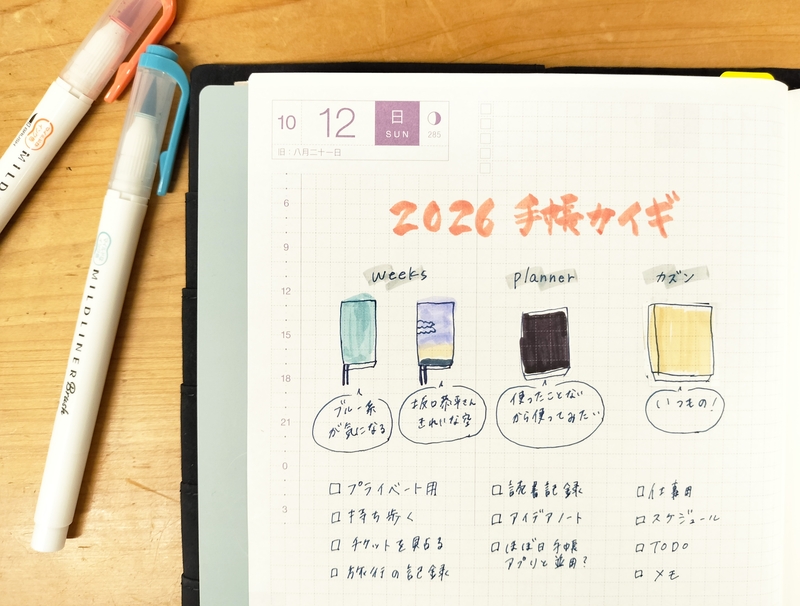 10
12
日
SUN
285
旧：八月二十一日
2026 手帳カイギ
weeks
planner
カズン
ブルー系
が気になる
坂口恭平さん
きれいな空
使ったことない
から使ってみたい
いつもの！
6
9
12
15
18
21
0
3
プライベート用
持ち歩く
チケットを貼る
旅行の記録
読書記録
アイデアノート
ほぼ日手帳
アプリと並用？
仕事用
スケジュール
TODO
メモ
MILD
MILDLINER Brush